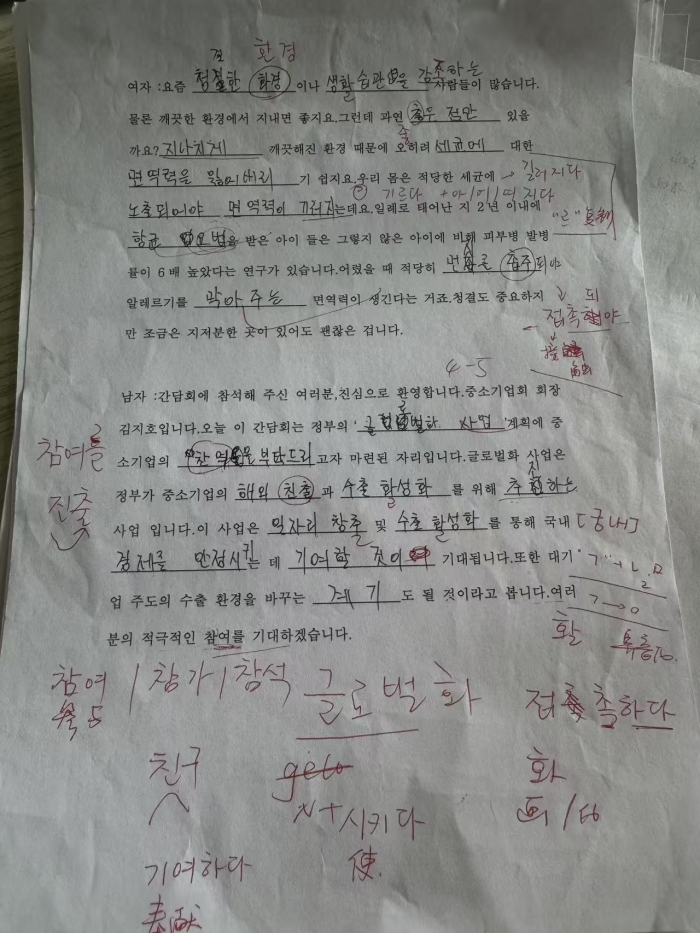 환경
여자 :요즘 청결한 환경 이나 생활 습관을 강조하는 사람들이 많습니다.
물론 깨끗한 환경에서 지내면 좋지요.그런데 과연 좋기만 있을
까요? 지나치게 깨끗해진 환경 때문에 오히려 세균에 대한
면역력을 잃어버리 기 쉽지요.우리 몸은 적당한 세균에 → 길러지다
기르다 +아/어/여 지다
노출되어야 면역력이 길러지는데요.일례로 태어난 지 2년 이내에 "르"
항균 을 받은 아이 들은 그렇지 않은 아이에 비해 피부병 발병
률이 6배 높았다는 연구가 있습니다.어렸을 때 적당히 되야
알레르기를 막아 주는 면역력이 생긴다는 거죠.청결도 중요하지 ↓ 되
만 조금은 지저분한 곳이 있어도 괜찮은 겁니다. 접촉 야
4-5
남자 :간담회에 참석해 주신 여러분,진심으로 환영합니다.중소기업회 회장
김지호입니다.오늘 이 간담회는 정부의 ' 글로벌화 사업 '계획에 중
참여를
소기업의 부탁드리고자 마련된 자리입니다.글로벌화 사업은
진출
정부가 중소기업의 해외 진출 과 수출 활성화 를 위해 추진하는
사업 입니다.이 사업은 일자리 창출 및 수출 활성화 를 통해 국내 [궁내]
경제를 안정시키는 데 기여할 것이 기대됩니다.또한 대기 ㄱ + ㄴ,ㅁ
업 주도의 수출 환경을 바꾸는 계기 도 될 것이라고 봅니다.여러 ㄱ→ㅇ
분의 적극적인 참여를 기대하겠습니다. 활
참여 / 참가 / 참석 글로벌화 접촉하다
친구 화
N+시키다
기여하다 使.